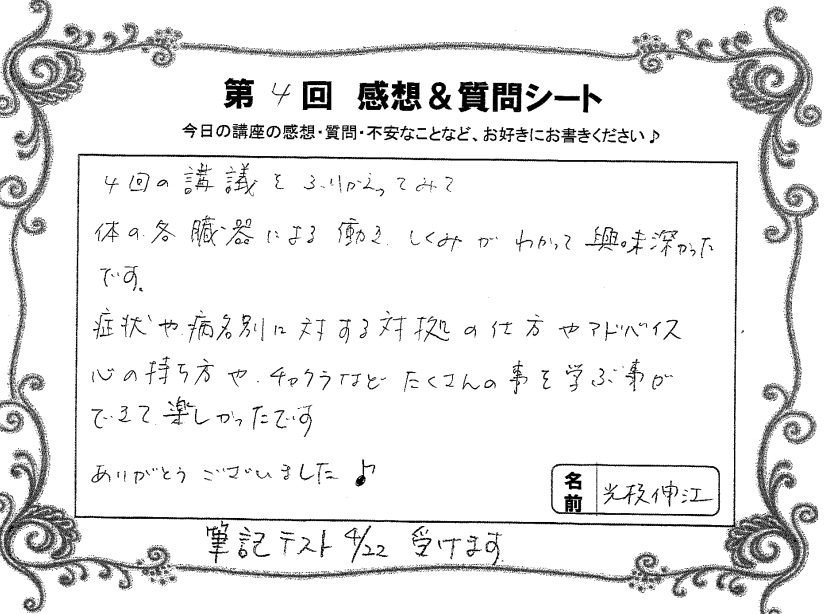 第4回 感想&質問シート
今日の講座の感想・質問・不安なことなど、お好きにお書きください♪
4回の講議をふりかえってみて
体の各臓器による働き、しくみがわかって興味深かった
です。
症状や病名別に対する対処の仕方やアドバイス
心の持ち方や、チャクラなどたくさんの事を学ぶ事が
できて楽しかったです
ありがとうございました♪
名前 光枝伸江
筆記テスト4/22 受けます